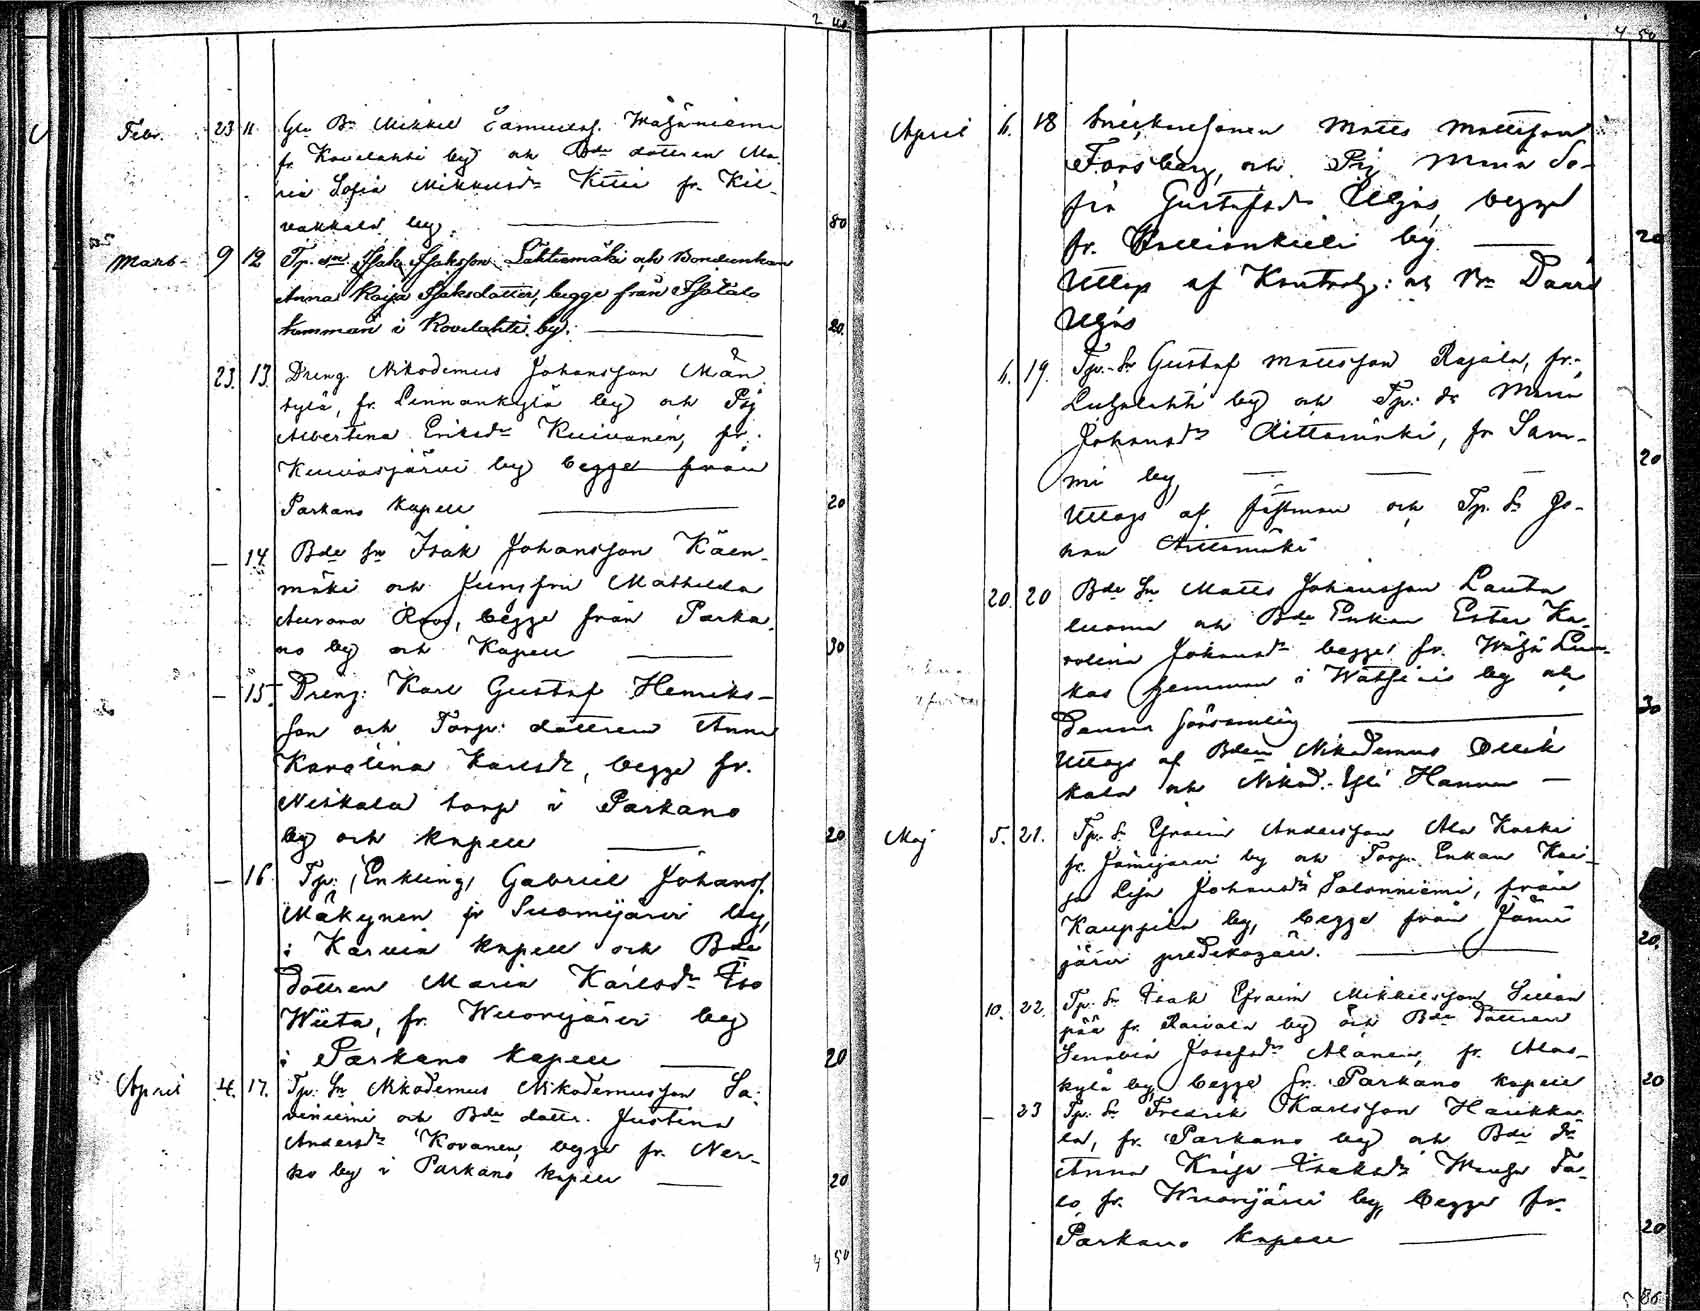 2 40
Febr. 23 11. Gle Bn Mikkel Samuelss. Wähäniemi
fr. Kovelahti by och Bde dottren Ma-
ria Sofia Mikkelsdr Kitti fr. Kil-
vakkala by. 80
Mars 9 12 Tp. sn Isak Isaksson Lähteemäki och Bondeenkan
Anna Kaisa Isaksdotter, begge från Isotalo
hemman i Kovelahti by. 20.
23. 13. Dreng. Nikodemus Johansson Män
tylä, fr. Linnankylä by och Pig
Albertina Eriksdr Kuivanen, fr.
Kuivasjärvi by begge från
Parkano Kapell 20
— 14. Bde sn Isak Johansson Käen-
mäki och Jungfru Mathilda
Aurora Roos, begge från Parka-
no by och Kapell 30
— 15. Dreng: Karl Gustaf Henriks-
son och Torp: dottren Anna
Karolina Karlsdr, begge fr.
Neskala torp i Parkano
by och kapell 20
— 16 Tp: (Enkling) Gabriel Johanss.
Mäkynen fr Suomijärvi by,
i Karvia kapell och Bde
dottren Maria Karlsdr Iso
Wiita, fr. Wuorijärvi by
i Parkano kapell 20
April 4. 17. Tp: Sn Nikodemus Nikodemusson Sa-
viniemi och Bde dottr. Justina
Andersdr Kovanen, begge fr. Ner-
ko by i Parkano kapell 20
4 50
4 50
April 6. 18 Snickaresonen Matts Mattsson
Forsberg, och Pig Maria So-
fia Gustafsdr Uljas, begge
fr. by 20
Uttogs af Kontrah: och Bn David
Uljas
6. 19. Tp. Sn Gustaf Mattsson Rajala, fr.
Luhalahti by och Tp: dr Maria
Johansdr Aittamäki, fr Sam-
mi by, 20
Uttogs af fästman och Tp. Sn Jo-
han Aittamäki
20. 20 Bde Sn Matts Johansson Lauta
luoma och Bde Enkan Ester Ka-
rolina Johansdr begge fr. Wähä
kas hemman i by och
Denna församling 30
Uttogs af Bden Nikodemus Ollik
kala och Nikod. Hannu —
Maj 5. 21. Tp. Sn Efraim Andersson Ala Koski
fr. Jämijärvi by och Torp. Enkan Kai-
sa Lisa Johansdr Salonniemi, från
Kauppila by, begge från Jämi
järvi predikogäll. 20.
10. 22. Tp. Sn Isak Efraim Mikkelsson Sillan
pää fr. Raivala by och Bde Dottren
Serafia Josefsdr Alanen, fr. Alas-
kylä by, begge fr. Parkano kapell 20
— 23 Tp. Sn Fredrik Karlsson Haukka
la, fr. Parkano by och Bde Dr
Anna Kaisa Isaksdr Wanha Ta-
lo, fr. Wuorijärvi by, begge fr.
Parkano kapell 20
5 80